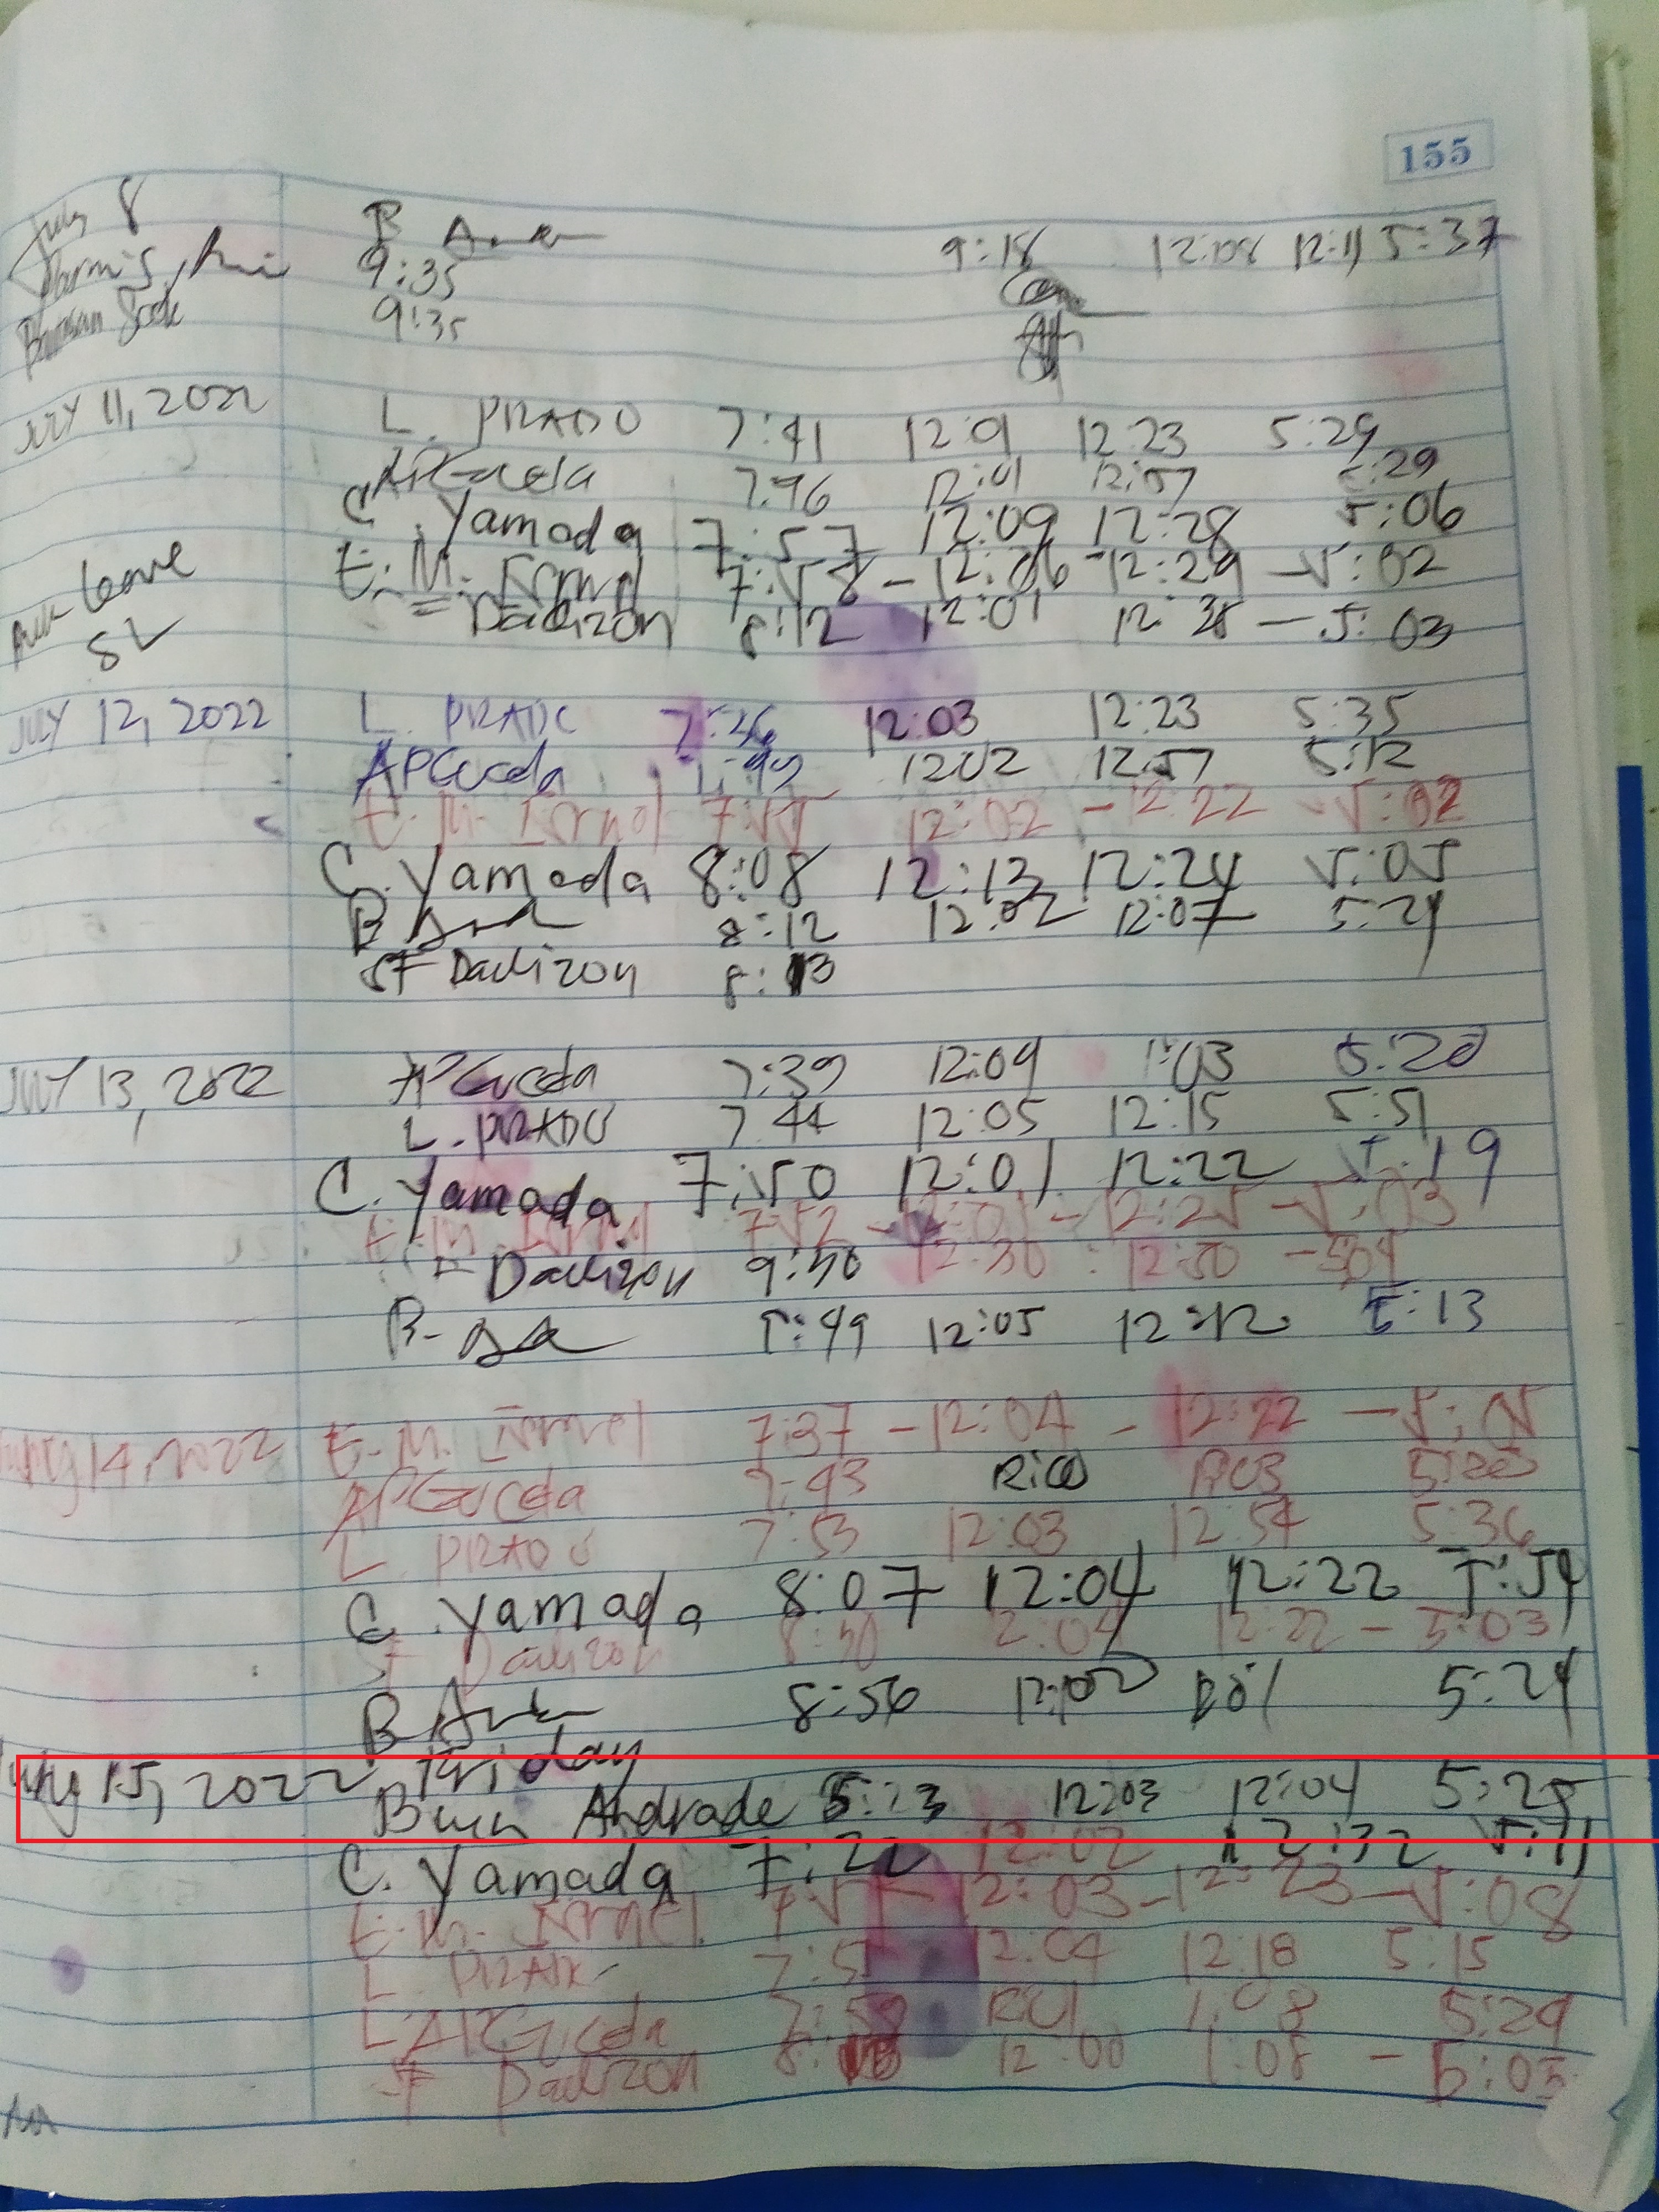 155
July 8 B 9:18 12:08 12:11 5:37
9:35
9:35
JULY 11, 2022 L. PRADO 7:41 12:01 12:23 5:29
APGuceda 7:46 12:01 12:57 5:29
C. Yamada 7:57 12:09 12:28 5:06
E. M. Israel 7:58 - 12:06 - 12:29 - 5:02
leave Dadizon 8:12 12:01 12:38 - 5:03
SL
JULY 12, 2022 L. PRADO 7:36 12:03 12:23 5:35
APGuceda 12:02 12:57 5:12
E. M. Israel 7:55 12:02 - 12:22 - 5:02
C. Yamada 8:08 12:13 12:24 5:05
B 8:12 12:02 12:07 5:24
SF Dadizon 8:13
JULY 13, 2022 APGuceda 7:39 12:04 1:03 5:20
L. PRADO 7:44 12:05 12:15 5:51
C. Yamada 7:50 12:01 12:22 5:19
E. M. Israel 7:52 - 12:01 - 12:25 - 5:03
SF Dadizon 9:30 12:30 12:50 - 5:04
B. 12:05 12:12 5:13
July 14, 2022 E. M. Israel 7:37 - 12:04 - 12:22 - 5:
APGuceda 7:43 RICO
L. PRADO 7:53 12:03 12:54 5:36
C. Yamada 8:07 12:04 12:22 5:54
SF Dadizon 8:30 12:04 12:22 - 5:03
B 8:56 12:02 5:24
July 15, 2022 Friday
Andrade 12:03 12:04 5:25
C. Yamada 7:22 12:02 12:32 5:11
E. M. Israel 12:03 - 12:23 - 5:08
L. PRADO 12:04 12:18 5:15
APGuceda 7:58 1:08 5:29
SF Dadizon 12:00 1:08 - 5:03